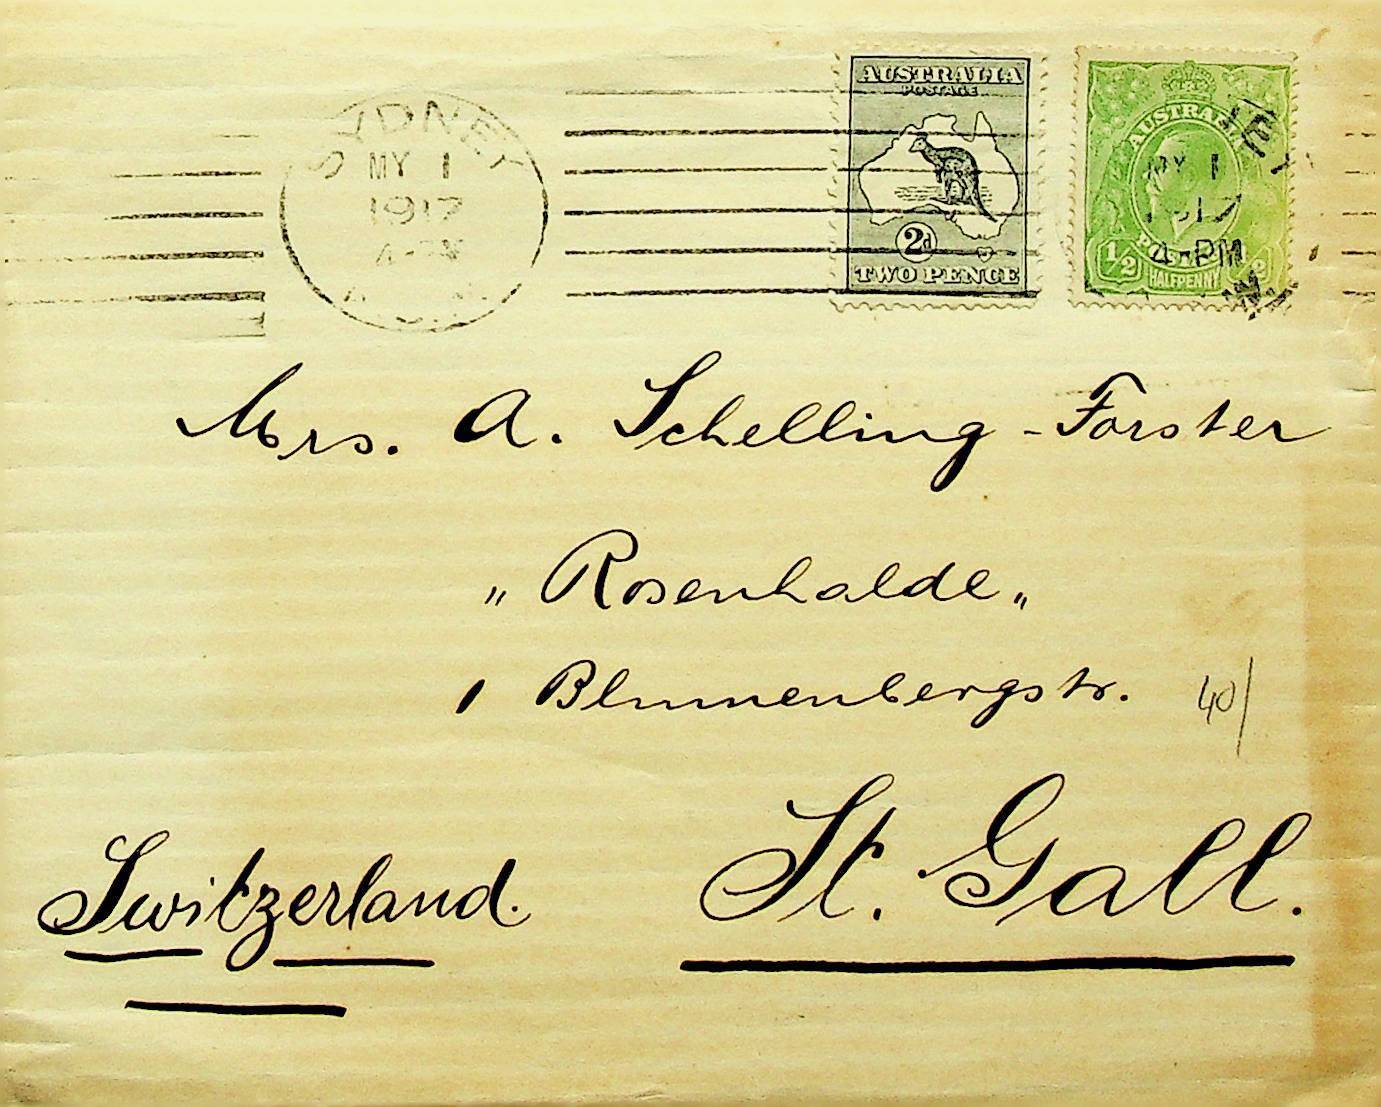 SYDNEY
MY 1
1917
AUSTRALIA
POSTAGE
2d
TWO PENCE
MY 1
4-PM
1/2
HALFPENNY
Mrs. A. Schelling-Forster
„Rosenhalde„
1 Blumenbergstr.
40/
St. Gall.
Switzerland.